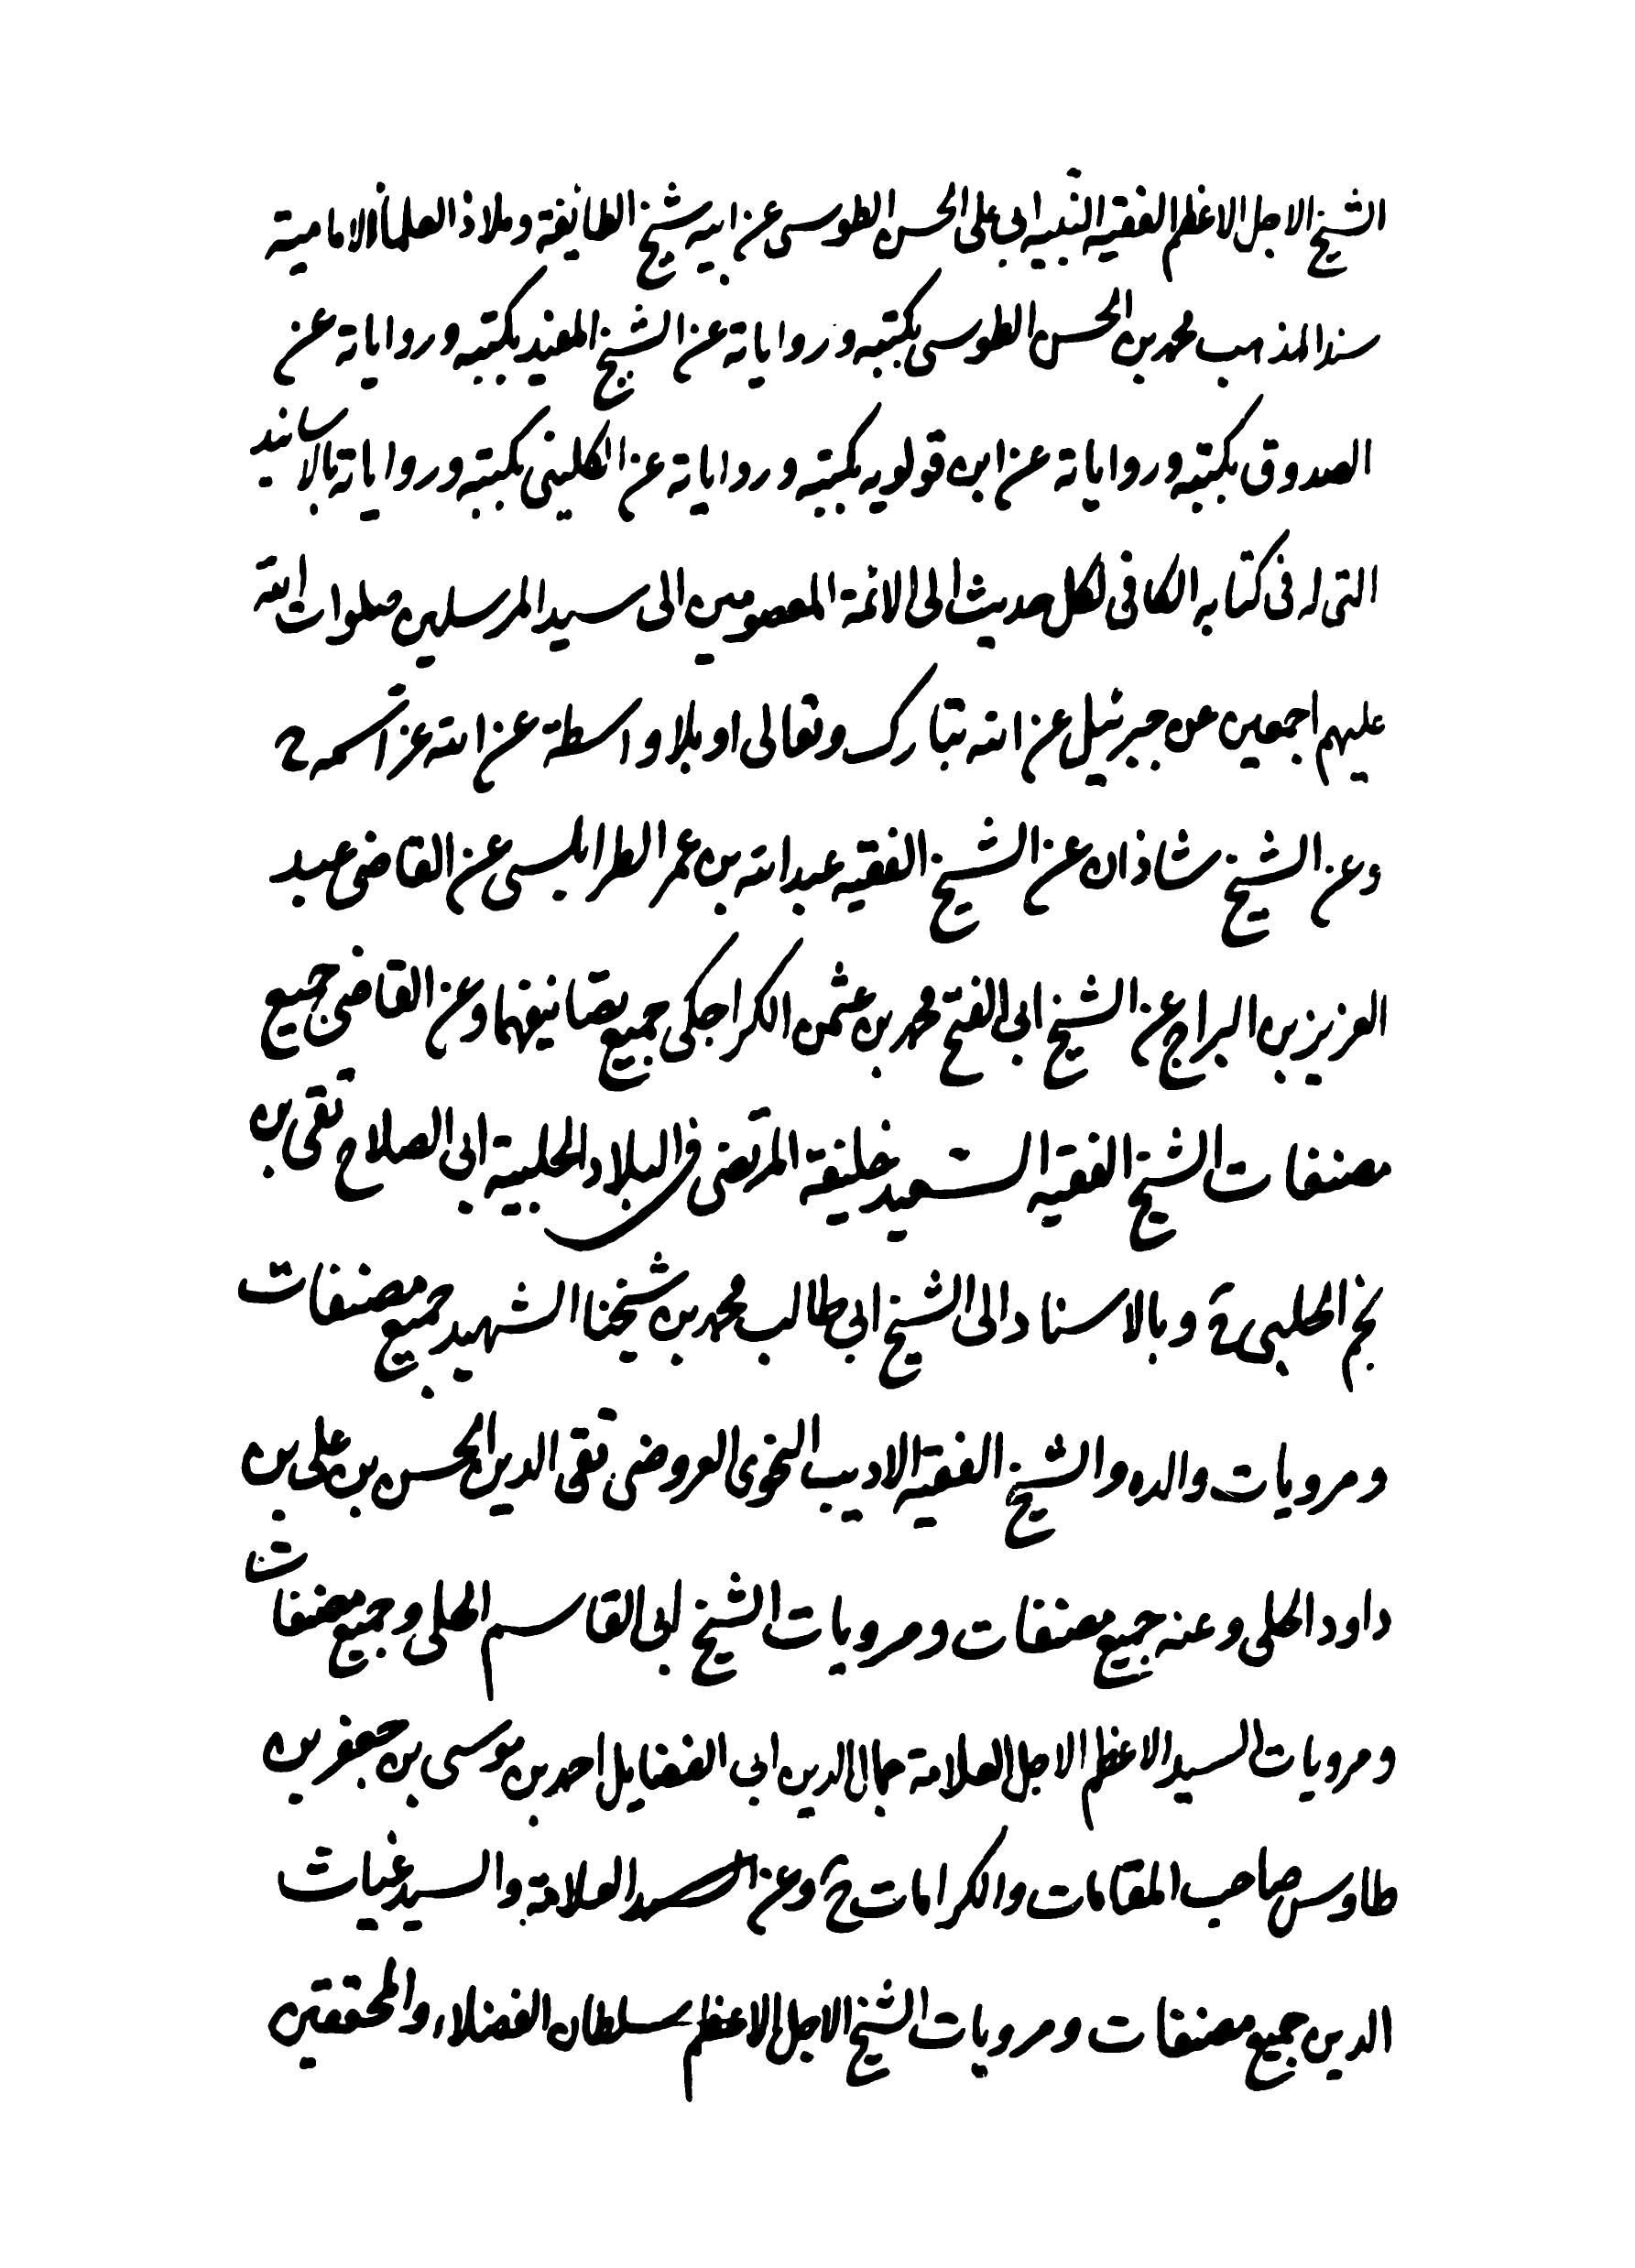 الشيخ الاجل الاعظم الفقيه النبيه ابى على الحسن الطوسى عن ابيه شيخ الطائفة و ملاذ العلماء الامامية
سند المذهب محمد بن الحسن الطوسى بكتبه و رواياته عن الشيخ المفيد بكتبه و رواياته عن
الصدوق بكتبه و رواياته عن ابن قولويه بكتبه و رواياته عن الكلينى بكتبه و رواياته بالاسانيد
التى له فى كتابه الكافى لكل حديث الى الائمة المعصومين الى سيد المرسلين صلوات الله
عليهم اجمعين عن جبرئيل عن الله تبارك وتعالى او بلا واسطة عن الله عز اسمه ح
وعن الشيخ شاذان عن الشيخ الفقيه عبد الله بن عمر الطرابلسى عن القاضى عبد
العزيز بن البراج عن الشيخ ابى الفتح محمد بن عثمن الكراجكى جميع تصانيفهما وعن القاضى جميع
مصنفات الشيخ الفقيه السعيد خليفة المرتضى فى البلاد الحلبية ابى الصلاح تقى بن
نجم الحلبى وبالاسناد الى الشيخ ابى طالب محمد بن شيخنا الشهيد جميع مصنفات
ومرويات والده والشيخ الفقيه الاديب النحوى العروضى تقى الدين الحسن بن على بن
داود الحلى وعنه جميع مصنفات ومرويات الشيخ ابى القاسم الحلى وجميع مصنفات
ومرويات السيد الاعظم الاجل العلامة جمال الدين ابى الفضايل احمد بن موسى بن جعفر بن
طاوس صاحب المقامات والكرامات وعن السيد العلامة والسيد غياث
الدين جميع مصنفات ومرويات الشيخ الاجل الاعظم سلطان الفضلاء والمحققين